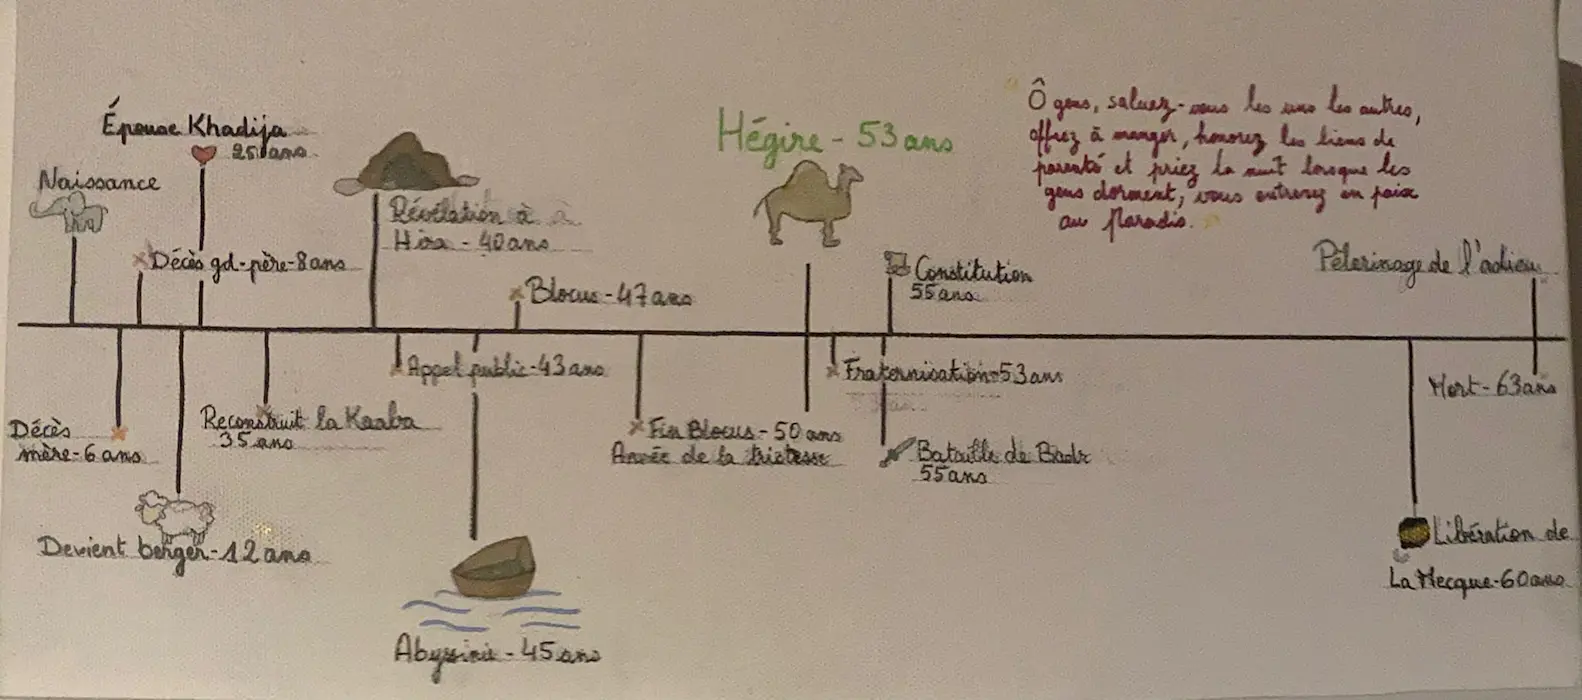 Épouse Khadija
25 ans
Naissance
Décès gd-père-8 ans
Révélation à
Hira - 40 ans
Blocus - 47 ans
Hégire - 53 ans
Constitution
55 ans
Ô gens, saluez-vous les uns les autres,
offrez à manger, honorez les liens de
parenté et priez la nuit lorsque les
gens dorment, vous entrerez en paix
au Paradis.
Pèlerinage de l'adieu
Décès
mère-6 ans
Devient berger-12 ans
Reconstruit la Kaaba
35 ans
Appel public-43 ans
Abyssinie - 45 ans
Fin Blocus - 50 ans
Année de la tristesse
Fraternisation-53 ans
Bataille de Badr
55 ans
Mort - 63 ans
Libération de
La Mecque-60 ans